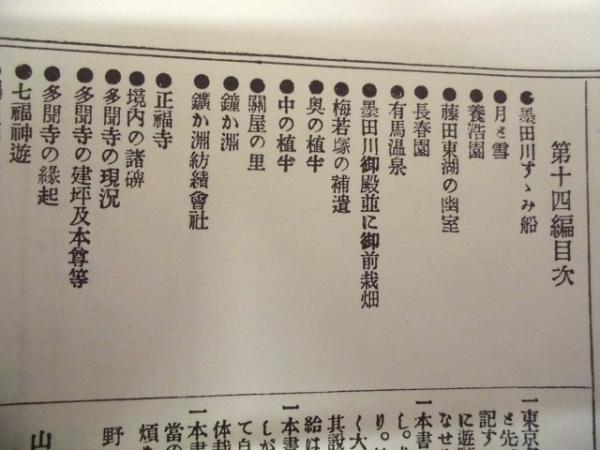 第十四編目次
●墨田川すゞみ船
●月と雪
●養浩園
●藤田東湖の幽室
●長春園
●有馬温泉
●墨田川御殿並に御前栽畑
●梅若塚の補遺
●奥の植半
●中の植半
●關屋の里
●鐘か淵
●鐘か淵紡績會社
●正福寺
●境内の諸碑
●多聞寺の現況
●多聞寺の建坪及本尊等
●多聞寺の縁起
●七福神遊
一東京
と先
記す
に遊
なせ
一本書
し。
り。
く大
其說
給は
一本書
しが
て自
体裁
一本書
當の
煩
野
山